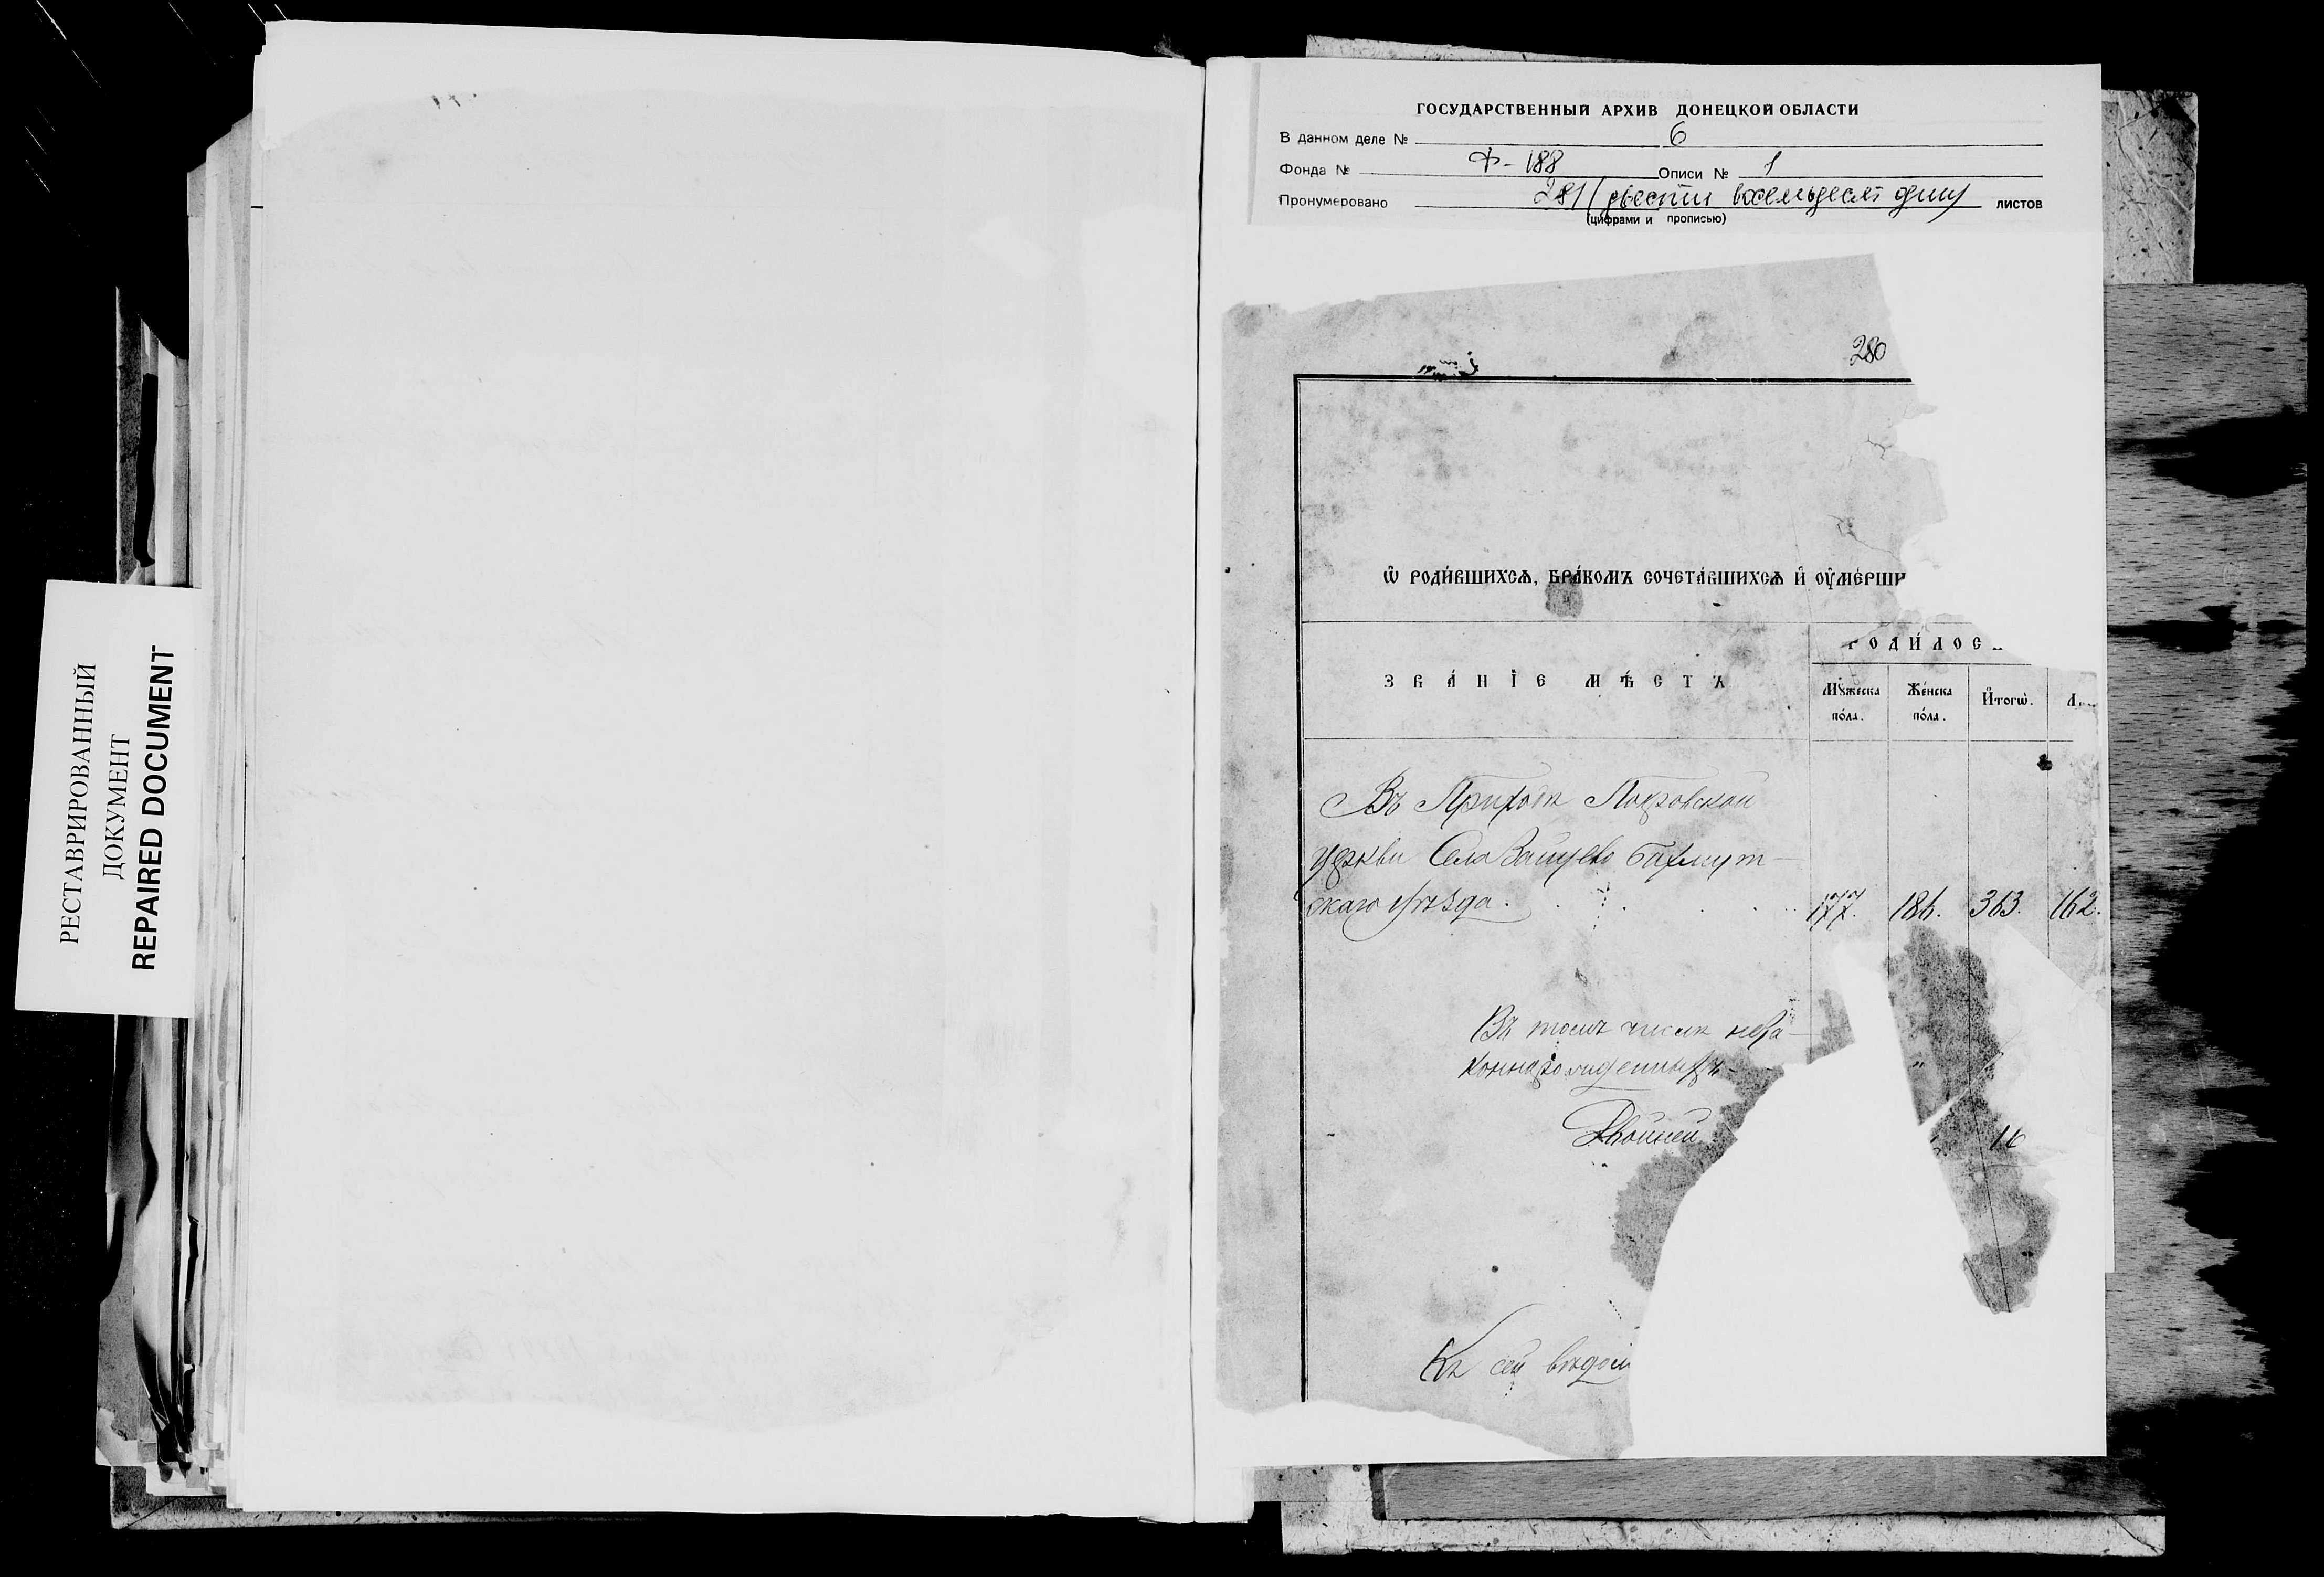 РЕСТАВРИРОВАННЫЙ
ДОКУМЕНТ
REPAIRED DOCUMENT
ГОСУДАРСТВЕННЫЙ АРХИВ ДОНЕЦКОЙ ОБЛАСТИ
В данном деле № 6
Фонда № Ф-188 Описи № 1
Пронумеровано 281 (двести восемьдесят один листов
(цифрами и прописью)
280
Ѡ РОДИ́ВШИХСѦ, БРА́КОМЪ СОЧЕТА́ВШИХСѦ И҆ ОУ҆МЕ́РШИ
РОДИ́ЛОС
ЗВА́НІЕ МѢ́СТЪ
Мꙋ́жеска
по́ла.
Же́нска
по́ла.
И҆тогѡ̀.
Въ Приходѣ Покровской
церкви Села Зайцево Бахмут-
скаго уѣзда. 177. 186. 363. 162.
Въ томъ числѣ неза-
коннорожденныхъ
"
Двойней
16
Къ сей вѣдом